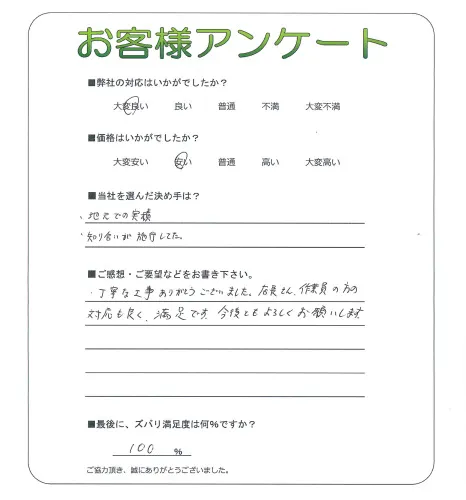 お客様アンケート
■弊社の対応はいかがでしたか？
大変良い 良い 普通 不満 大変不満
■価格はいかがでしたか？
大変安い 安い 普通 高い 大変高い
■当社を選んだ決め手は？
・地元での実績
・知り合いが施行してた。
■ご感想・ご要望などをお書き下さい。
・丁寧な工事ありがとうございました。店長さん、作業員の方の
対応も良く、満足です。今後ともよろしくお願いします。
■最後に、ズバリ満足度は何%ですか？
100 %
ご協力頂き、誠にありがとうございました。